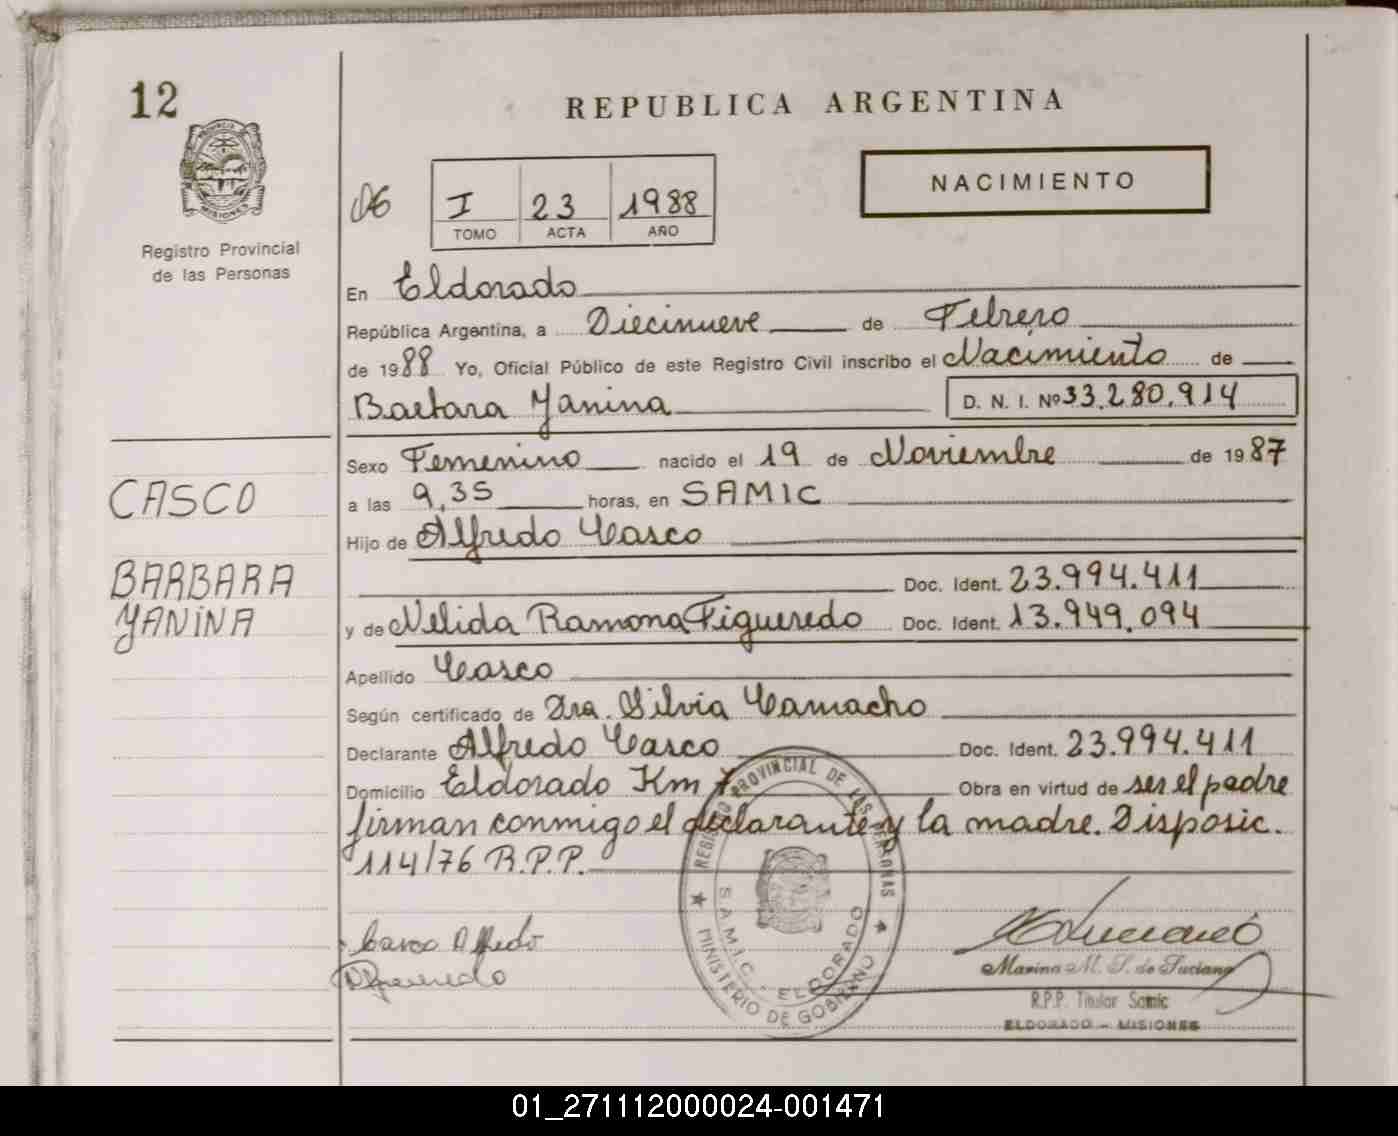 12
REPUBLICA ARGENTINA
PROVINCIA DE
MISIONES
Registro Provincial
de las Personas
06
I 23 1988
TOMO ACTA AÑO
NACIMIENTO
En Eldorado
República Argentina, a Diecinueve de Febrero
de 1988 Yo, Oficial Público de este Registro Civil inscribo el Nacimiento de
Barbara Yanina D. N. I. Nº 33.280.914
Sexo Femenino nacido el 19 de Noviembre de 1987
a las 9,35 horas, en SAMIC
Hijo de Alfredo Casco
Doc. Ident. 23.994.411
y de Nelida Ramona Figueredo Doc. Ident. 13.949.094
Apellido Casco
Según certificado de Dra. Silvia Camacho
Declarante Alfredo Casco Doc. Ident. 23.994.411
Domicilio Eldorado Km 7 Obra en virtud de ser el padre
firman conmigo el declarante y la madre. Disposic.
114/76 R.P.P.
CASCO
BARBARA
YANINA
Casco Alfredo
REGISTRO PROVINCIAL DE LAS PERSONAS
S.A.M.I.C. - ELDORADO
MINISTERIO DE GOBIERNO
Marina M. S. de Luciano
R.P.P. Titular Samic
ELDORADO - MISIONES
01_271112000024-001471